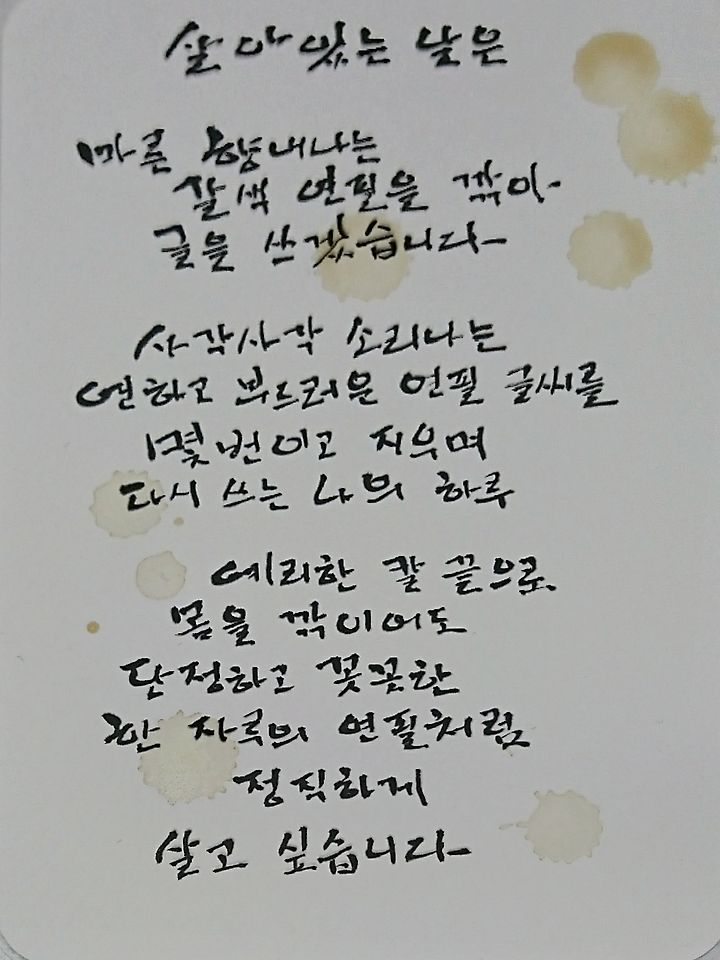 살아있는 날은
마른 향내나는
갈색 연필을 깎아
글을 쓰겠습니다
사각사각 소리나는
연하고 부드러운 연필 글씨를
몇번이고 지우며
다시 쓰는 나의 하루
예리한 칼 끝으로
몸을 깎이어도
단정하고 꼿꼿한
한 자루의 연필처럼
정직하게
살고 싶습니다